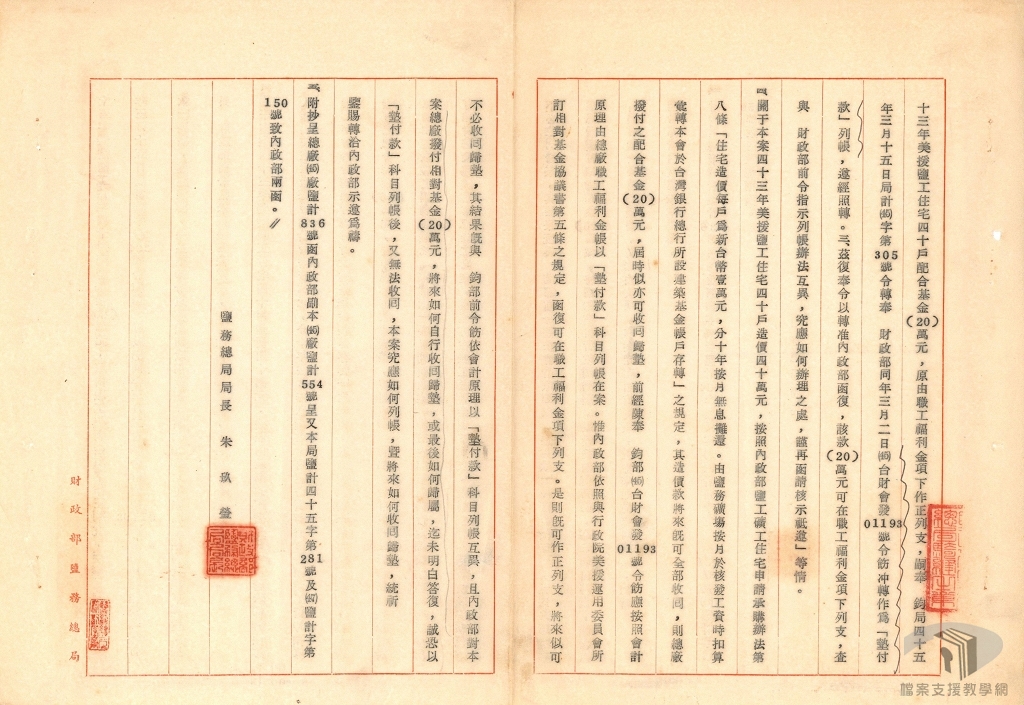 十三年美援鹽工住宅四十戶配合基金(20)萬元，原由職工福利金項下作正列支，嗣奉　鈞局四十五
年三月十五日局計㈣字第305號令轉奉　財政部同年三月二日㈣台財會發01193號令飭冲轉作爲「墊付
款」列帳，遵經照轉。三、茲復奉令以轉准內政部函復，該款(20)萬元可在職工福利金項下列支，查
與　財政部前令指示列帳辦法互異，究應如何辦理之處，謹再函請核示祗遵」等情。
關于本案四十三年美援鹽工住宅四十戶造價四十萬元，按照內政部鹽工礦工住宅申請承購辦法第
八條「住宅造價每戶爲新台幣壹萬元，分十年按月無息攤還。由鹽務礦場按月於核發工資時扣算
彙轉本會於台灣銀行總行所設建築基金帳戶存轉」之規定，其造價款將來旣可全部收回，則總廠
撥付之配合基金(20)萬元，屆時似亦可收回歸墊，前經陳奉　鈞部台財會發01193號令飭應按照會計
原理由總廠職工福利金帳以「墊付款」科目列帳在案。惟內政部依照與行政院美援運用委員會所
訂相對基金協議書第五條之規定，函復可在職工福利金項下列支。是則旣可作正列支，將來似可
不必收回歸墊，其結果旣與　鈞部前令飭依會計原理以「墊付款」科目列帳互異，且內政部對本
案總廠撥付相對基金(20)萬元，將來如何自行收回歸墊，或最後如何歸屬，迄未明白答復，誠恐以
「墊付款」科目列帳後，又無法收回，本案究應如何列帳，暨將來如何收回歸墊，統祈
鑒賜轉洽內政部示遵爲禱。
附抄呈總廠廠鹽計836號函內政部副本廠鹽計554號呈又本局鹽計四十五字第281號及鹽計字第
150號致內政部兩函。
鹽務總局局長　朱玖瑩
財政部鹽務總局
檔案支援教學網